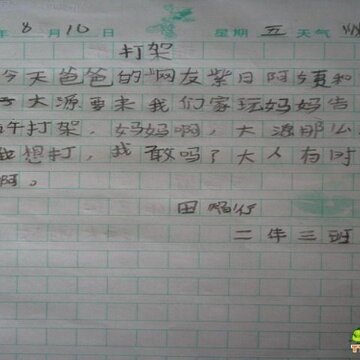 年 8 月 10 日 星期 五 天气
打架
今天爸爸的网友紫日阿姨和
大源要来我们家玩妈妈告
许打架。妈妈啊，大源那么
我想打，我敢吗？大人有时
啊。
田
二年三班